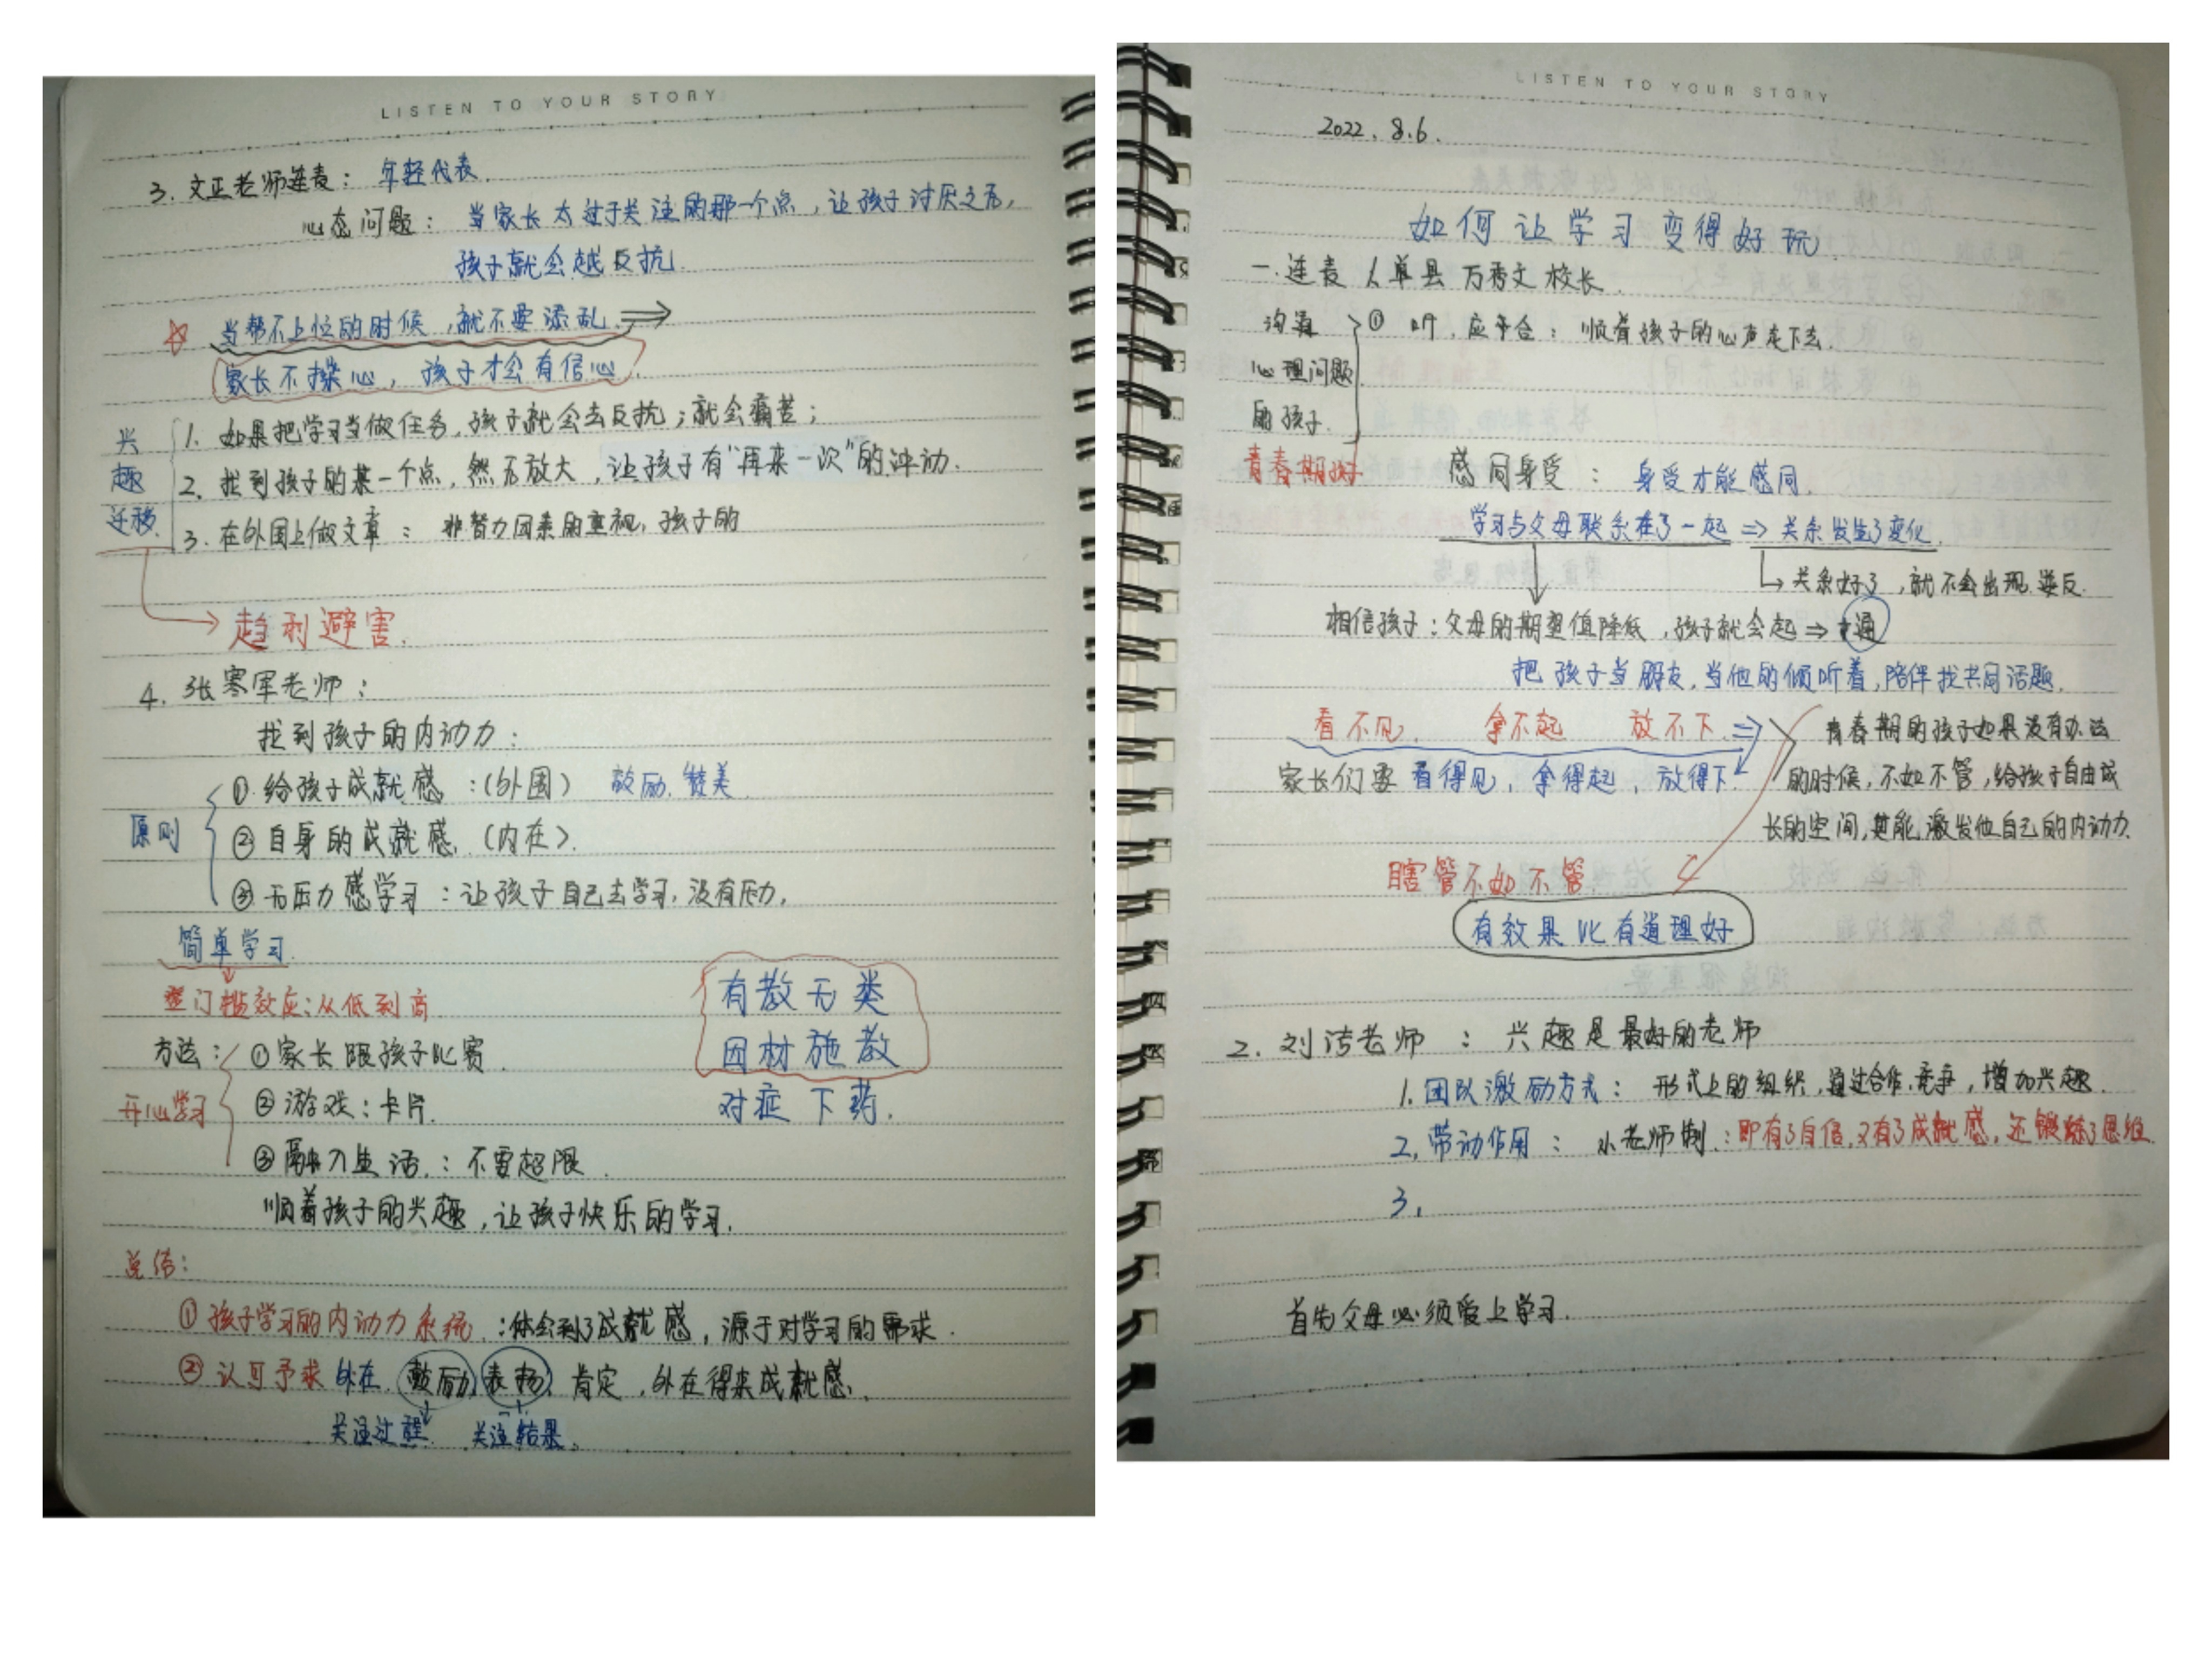 LISTEN TO YOUR STORY
3. 文正老师连麦： 年轻代表.
心态问题： 当家长太过于关注的那一个点，让孩子讨厌之后，
孩子就会越反抗.
☆ 当帮不上忙的时候，就不要添乱. ⇒
家长不操心，孩子才会有信心.
兴趣迁移.
1. 如果把学习当做任务，孩子就会去反抗；就会痛苦；
2. 找到孩子的某一个点，然后放大，让孩子有“再来一次”的冲动.
3. 在外围上做文章： 非智力因素的重视，孩子的
→ 趋利避害.
4. 张寒军老师：
找到孩子的内动力：
原则
① 给孩子成就感：(外围) 鼓励. 赞美
② 自身的成就感. (内在).
③ 无压力感学习：让孩子自己去学习，没有压力.
简单学习.
门槛效应：从低到高
方法：① 家长跟孩子比赛.
开心学习
② 游戏：卡片.
③ 融入生活.：不要超限.
顺着孩子的兴趣，让孩子快乐的学习.
有教无类
因材施教
对症下药.
总结：
① 孩子学习的内动力系统：体会到了成就感，源于对学习的需求.
② 认可予求 外在. 鼓励 表扬. 肯定，外在得来成就感.
关注过程. 关注结果.
LISTEN TO YOUR STORY
2022. 8.6.
如何让学习变得好玩.
一. 连麦 单县 万秀文校长.
沟通
心理问题
的孩子.
① 听，应 合：顺着孩子的心声走下去.
青春期
感同身受： 身受才能感同.
学习与父母联系在了一起 ⇒ 关系发生了变化.
↳ 关系好了，就不会出现逆反.
相信孩子：父母的期望值降低，孩子就会起 ⇒ 通
把孩子当朋友，当他的倾听着，陪伴找共同话题.
看不见. 拿不起 放不下. ⇒
家长们要 看得见，拿得起，放得下.
青春期的孩子如果没有办法
的时候，不如不管，给孩子自由成
长的空间，更能激发他自己的内动力.
瞎管不如不管.
有效果比有道理好
2. 刘洁老师： 兴趣是最好的老师
1. 团队激励方式： 形式上的组织，通过合作.竞争，增加兴趣.
2. 带动作用： 小老师制.：即有了自信，又有了成就感，还锻炼了思维.
3.
首先父母必须爱上学习.